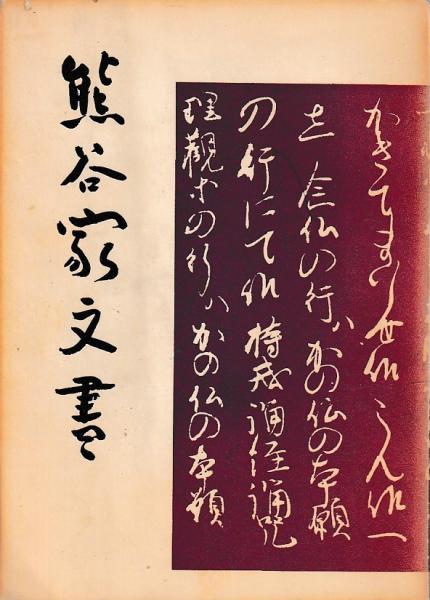 熊谷家文書
かきてま
念仏の行ハかの仏の本願
の行にて候持戒誦経誦呪
理観等の行ハかの仏の本願